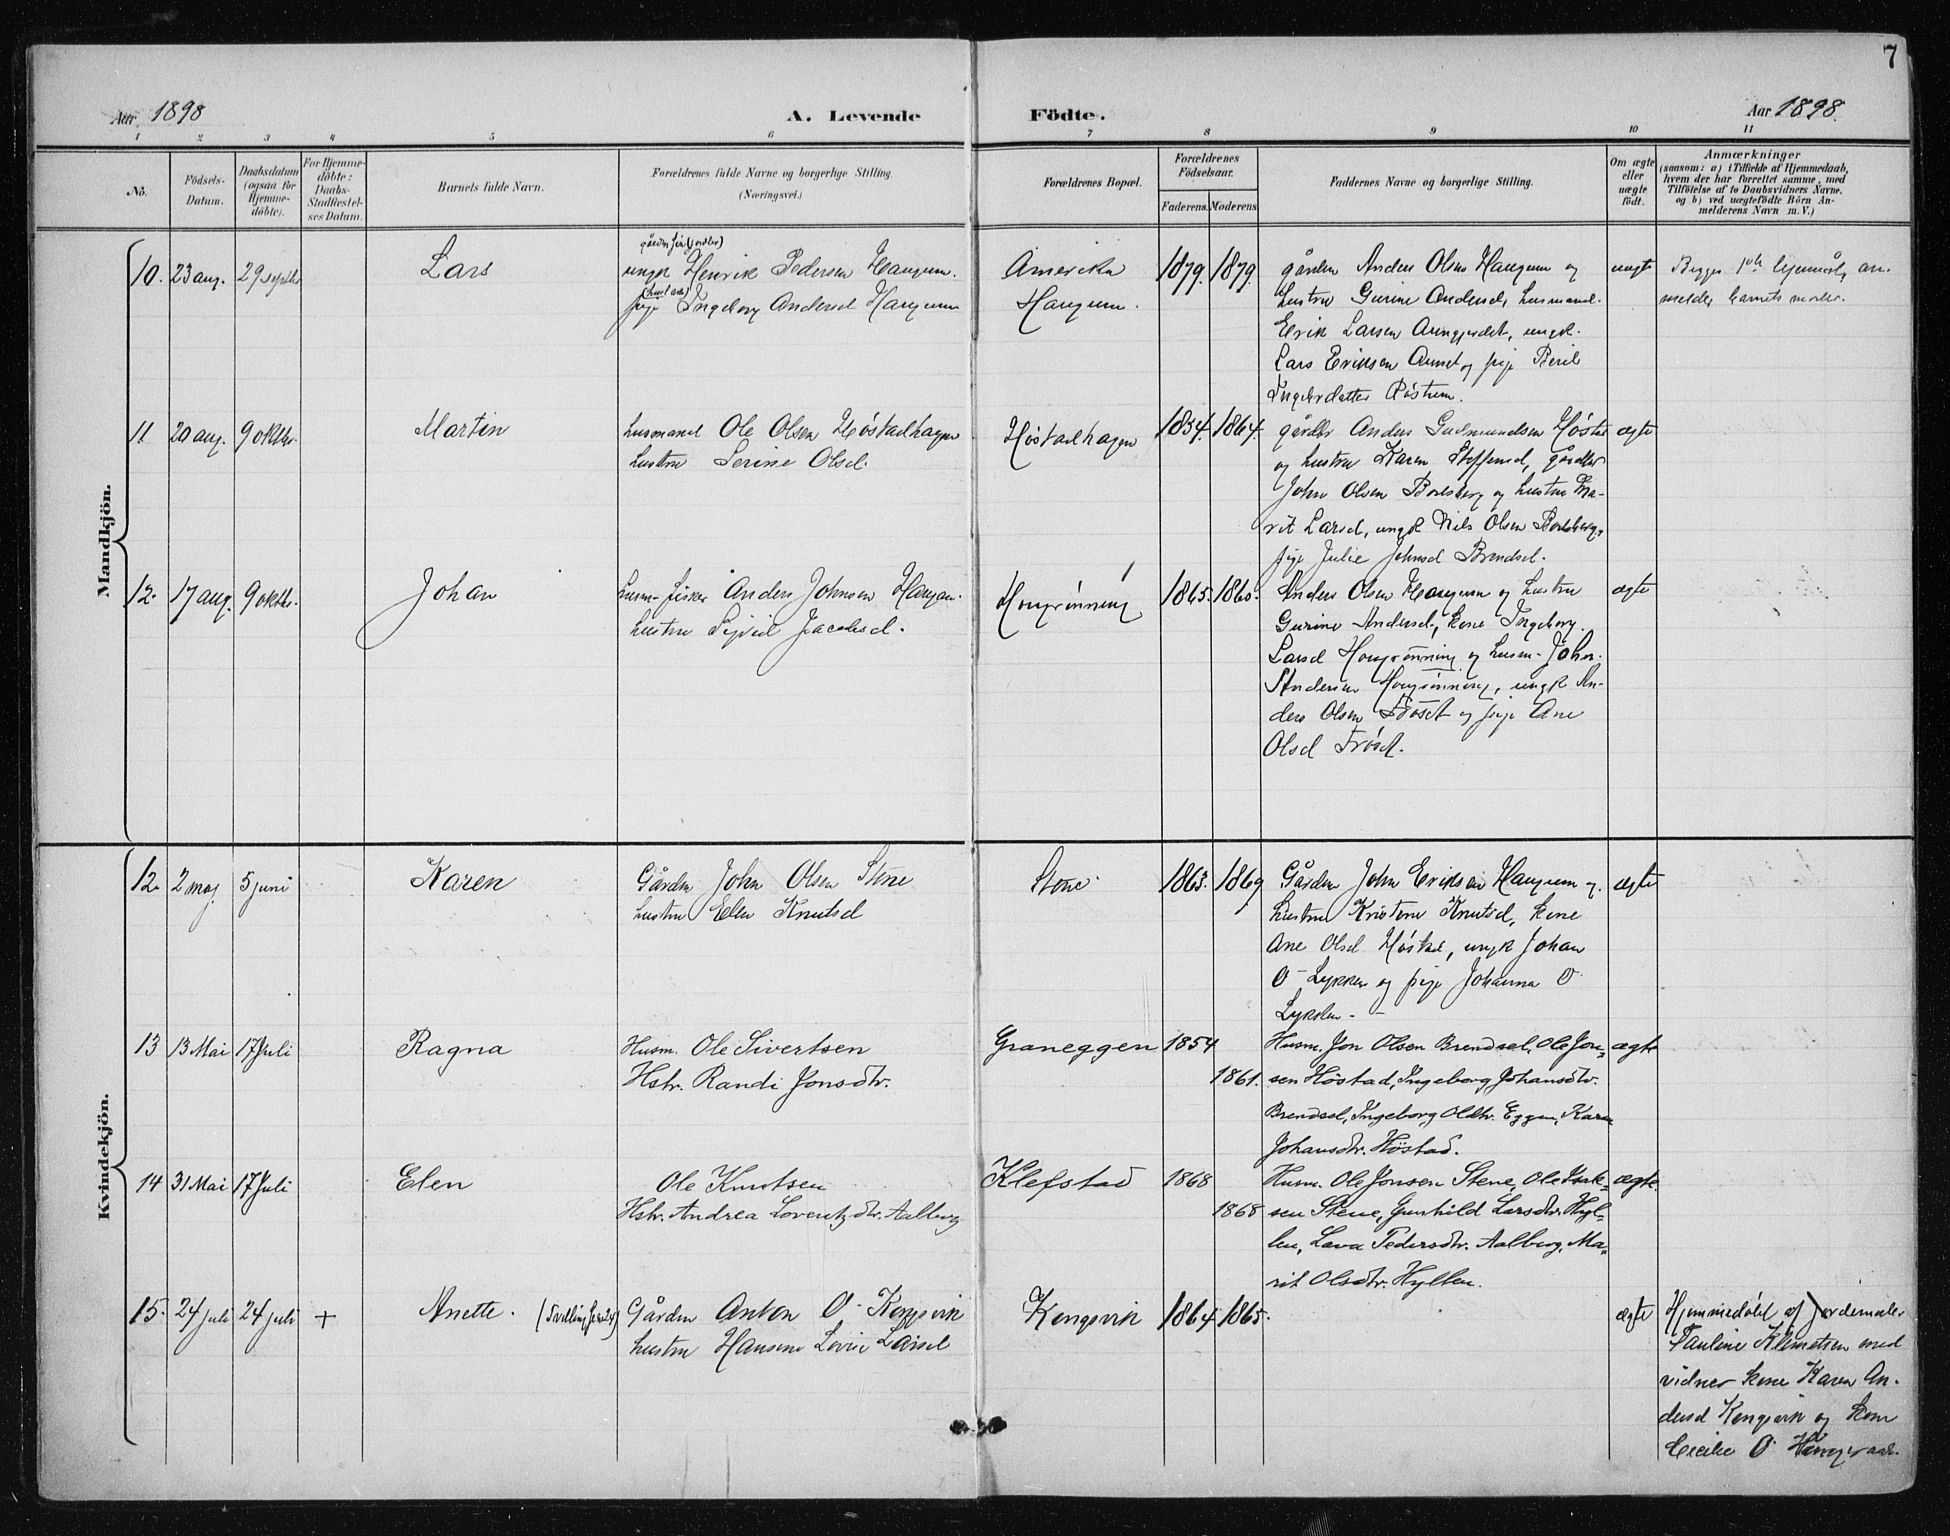 7
Aar 1898
A. Levende
Födte.
Aar 1898.
1 2 3 4 5 6 7 8 9 10 11
No.
Födsels-
Datum.
Daabsdatum
(ogsaa for
Hjemme-
döbte).
For Hjemme-
döbte:
Daabs-
Stadfæstel-
ses Datum.
Barnets fulde Navn.
Forældrenes fulde Navne og borgerlige Stilling.
(Næringsvei.)
Forældrenes Bopæl.
Forældrenes
Födselsaar.
Faderens. Moderens.
Faddernes Navne og borgerlige Stilling.
Om ægte
eller
uægte
födt.
Anmærkninger
(saasom: a) i Tilfælde af Hjemmedaab,
hvem der har forrettet samme, med
Tilföielse af to Daabsvidners Navne,
og b) ved uægtefödte Börn An-
melderens Navn m. V.)
Mandkjön.
10. 23 aug. 29 septbr
Lars
ungk Henrik Pedersen Haugum.
pige Ingeborg Andersd Haugum
Amerika
Haugum.
1879. 1879.
gården Anders Olsen Haugum og
hustru Gurine Andersd, husmand
Erik Larsen Aunegjerdet, ungk.
Lars Eriksen Aunet og pige Beril
Ingebrdatter Røstum.
uægte
Begges 1ste lejermål, an-
melder barnets moder.
11 20 aug. 9 oktbr.
Martin
husmand Ole Olsen Høstadhagen
hustru Serine Olsd.
Høstadhagen
1834. 1864.
gårdbr Anders Gudmundsen Høstad
og hustru Karen Steffensd, gårdbr
John Olsen Borsberg og hustru Ma-
rit Larsd, ungk Nils Olsen
pige Julie Johnsd Brendsel.
ægte
12. 17 aug. 9 oktbr.
Johan
husm- fisker Anders Johnsen Haugan.
hustru Sigrid Jacobsd.
Hougrønning
1865. 1860.
Anders Olsen Haugum og hustru
Gurine Andersd, kone Ingeborg
Larsd Hougrønning og husm- John
Andersen Hougrønning, ungk An-
ders Olsen Frøset og pige Ane
Olsd Frøset.
ægte
Kvindekjön.
12. 2 maj 5 juni
Karen
Gården John Olsen Stene
hustru Elen Knutsd
Stene.
1863. 1869
Gården John Eriksen Haugum og
hustru Kristine Knutsd, kone
Ane Olsd Høstad, ungk Johan
O- Lykken og pige Johanna O
Lykken -
ægte
13 13 Mai 17 Juli
Ragna
Husm. Ole Sivertsen
Hstr. Randi Jonsdtr.
Graneggen
1854
1861.
Husm. Jon Olsen Brendsel, Ole Jon-
sen Höstad, Ingeborg Johansdtr.
Brendsel, Ingeborg Oldtr. Eggen, Karen
Johansdtr. Höstad.
ægte
14 31 Mai 17 Juli
Elen
Ole Knutsen
Hstr. Andrea Lorentzdtr. Aalberg
Klefstad
1868
1868
Husm. Ole Jonsen Stene, Ole Isak-
sen Stene, Gunhild Larsdtr. Hyl-
len, Lava Pedersdtr. Aalberg, Ma-
rit Olsdtr. Hyllen.
ægte.
15. 24 juli 24 juli +
Anette.
Gården Anton O- Kongsvik
hustru Hansine Lovise Larsd
Kongsvik
1864 1865.
ægte
Hjemmedøbt af Jordemoder
Pauline Klemetsen med
vidner kone Karen An-
dersd Kongsvik og kone
Cecilie O